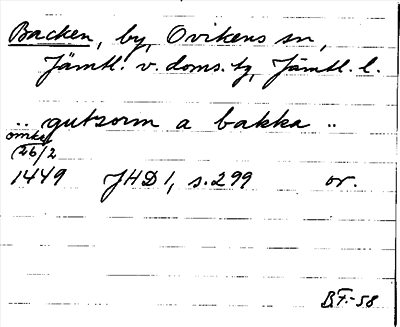 Backen, by, Ovikens sn,
Jämtl. v. doms. tg, Jämtl. l.
.. gutzorm a bakka ..
omkr
(26/2
1449 JHD 1, s. 299 or.
B.F.-58